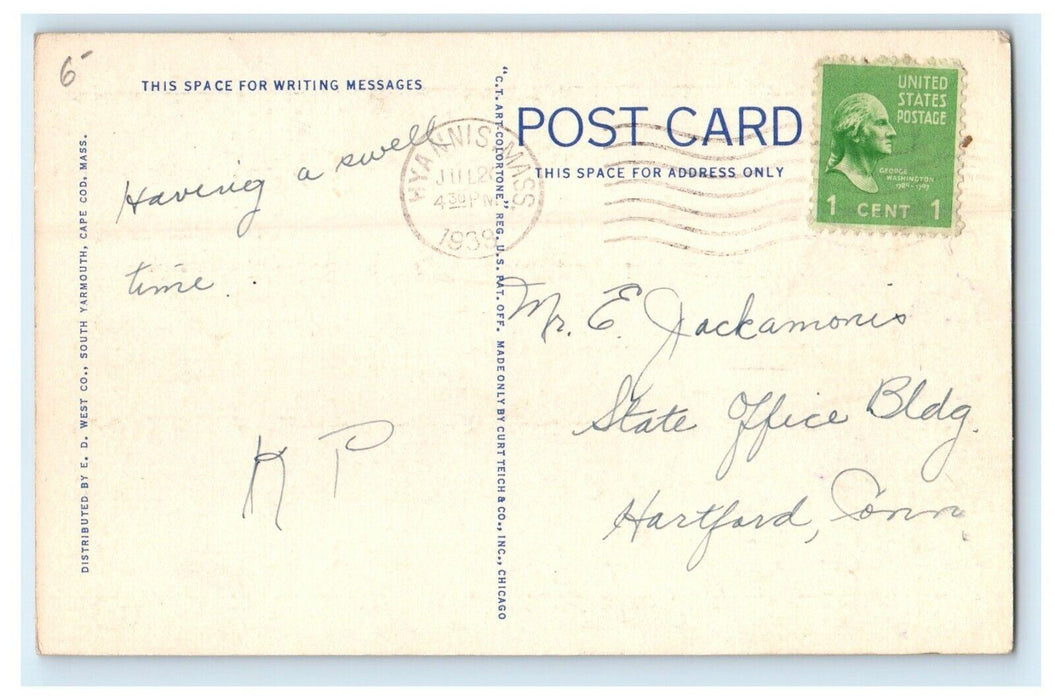 6-
THIS SPACE FOR WRITING MESSAGES
Having a swell
time.
K P
DISTRIBUTED BY E. D. WEST CO., SOUTH YARMOUTH, CAPE COD, MASS.
"C.T. ART-COLORTONE," REG. U.S. PAT. OFF. MADE ONLY BY CURT TEICH & CO., INC., CHICAGO
HYANNIS, MASS.
JUL 2
4 30 PM
1939
POST CARD
THIS SPACE FOR ADDRESS ONLY
UNITED
STATES
POSTAGE
GEORGE
WASHINGTON
1789-1797
1 CENT 1
Mr. E. Jackamonis
State Office Bldg.
Hartford, Conn.